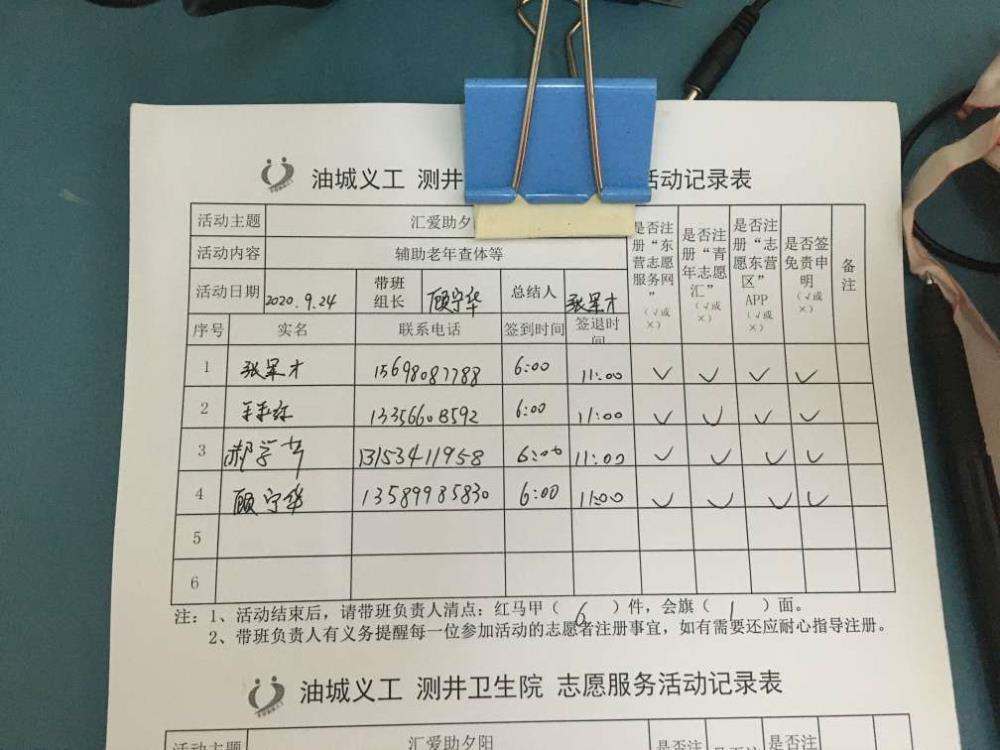 油城义工 测井 活动记录表
活动主题 汇爱助夕
活动内容 辅助老年查体等
活动日期 2020.9.24 带班组长 顾宁华 总结人
是否注册“东营志愿服务网”（√或×） 是否注册“青年志愿汇”（√或×） 是否注册“志愿东营区”APP（√或×） 是否签免责申明（√或×） 备注
序号 实名 联系电话 签到时间 签退时间
1 15698087788 6:00 11:00 √ √ √ √
2 13356608592 6:00 11:00 √ √ √ √
3 郝学书 13153411958 6:00 11:00 √ √ √ √
4 顾宁华 13589985830 6:00 11:00 √ √ √ √
5
6
注：1、活动结束后，请带班负责人清点：红马甲（ 6 ）件，会旗（ 1 ）面。
2、带班负责人有义务提醒每一位参加活动的志愿者注册事宜，如有需要还应耐心指导注册。
油城义工 测井卫生院 志愿服务活动记录表
活动主题 汇爱助夕阳 是否注 是否注 是否注